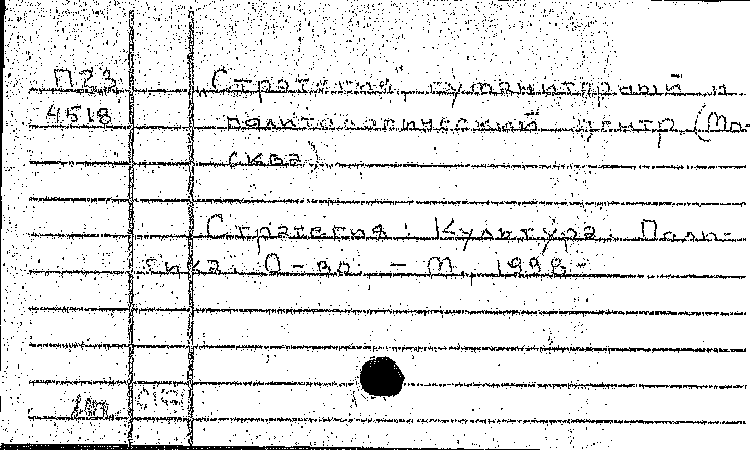 П23 "Стратегия", гуманитарный и
4518 политологический центр (Мо-
сква)
Стратегия: Культура. Поли-
тика. О-во. – М., 1998-